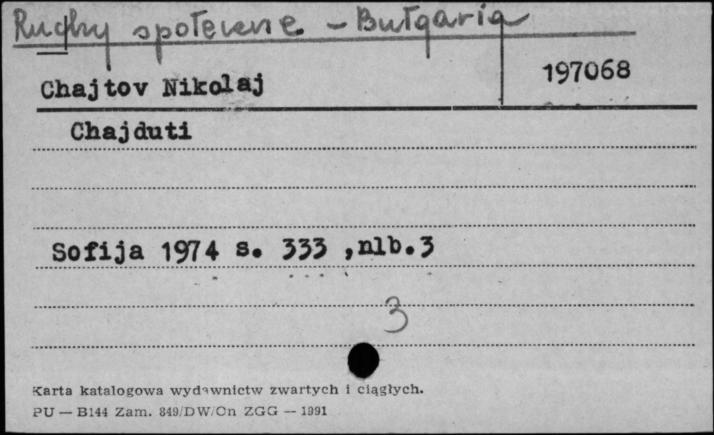 Ruchy społeczne - Bułgaria
Chajtov Nikolaj
197068
Chajduti
Sofija 1974 s. 333 ,nlb.3
3
Karta katalogowa wydawnictw zwartych i ciągłych.
PU — B144 Zam. 849/DW/On ZGG — 1991